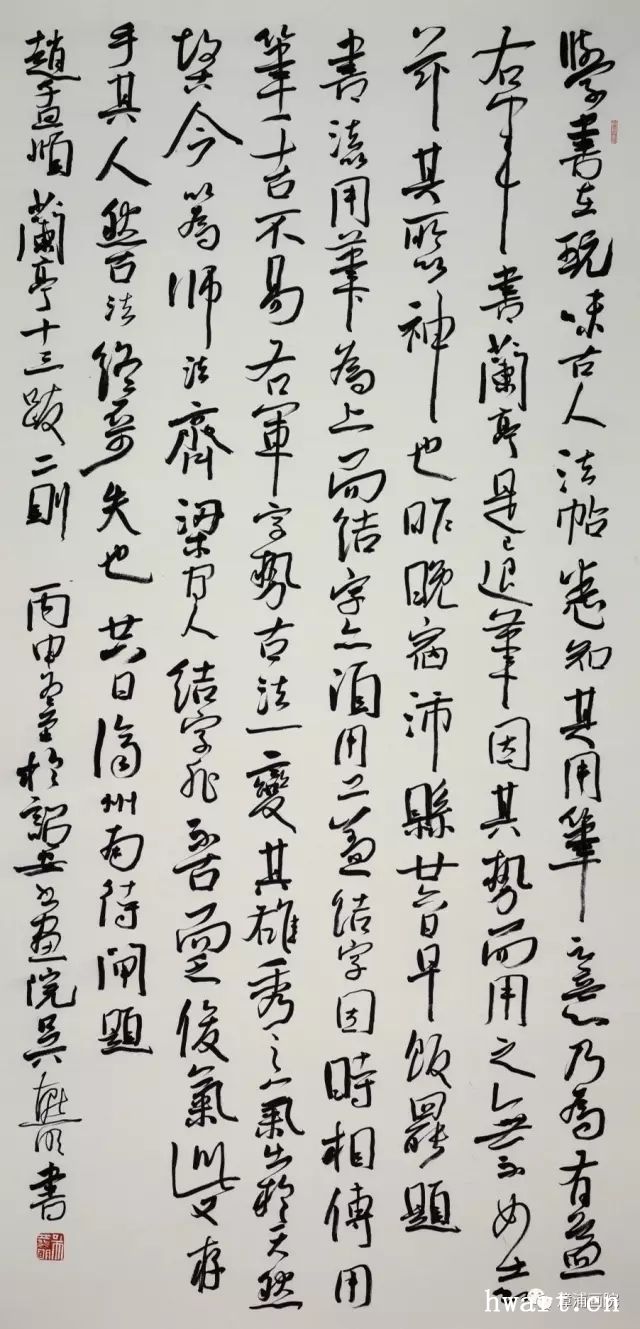 學書在玩味古人法帖悉知其用筆之意乃為有益
右軍書蘭亭是已退筆因其勢而用之無不如志
茲其所以神也昨晚宿沛縣廿六日早飯罷題
書法以用筆為上而結字亦須用工蓋結字因時相傳用
筆千古不易右軍字勢古法一變其雄秀之氣出於天然
故古今以為師法齊梁間人結字非不古而乏俊氣此又存
乎其人然古法終不可失也廿八日濟州南待閘題
趙孟頫蘭亭十三跋二則 丙申冬至於詔安書畫院吳明書
漳浦画院
hwart.cn